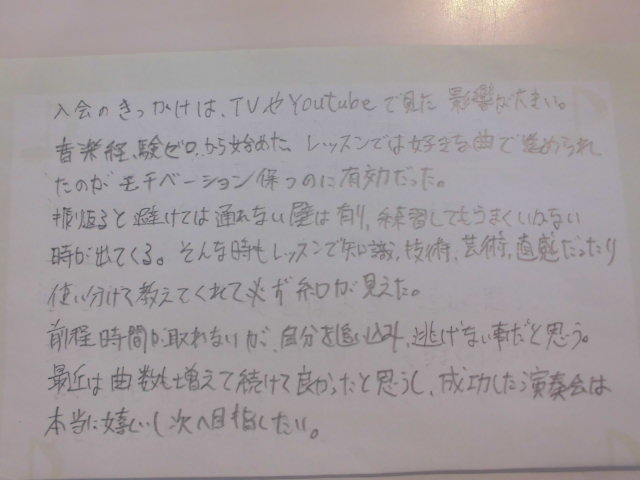 入会のきっかけは、TVやYoutubeで見た 影響が大きい。
音楽経験ゼロ、から始めた、レッスンでは好きな曲で進められ
たのがモチベーション保つのに有効だった。
振り返ると避けては通れない壁は有り、練習してもうまくいかない
時が出てくる。そんな時もレッスンで知識、技術、芸術、直感だったり
使い分けて教えてくれて必ず糸口が見えた。
時間が取れないが、自分を追い込み、逃げない事だと思う。
最近は曲数も増えて続けて良かったと思うし、成功した演奏会は
本当に嬉しいし次へ目指したい。